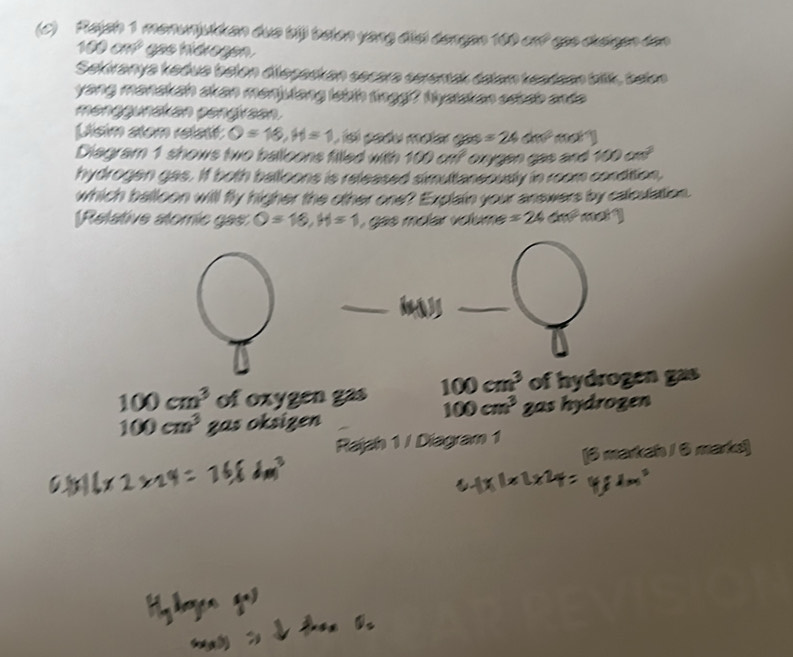 (c) Rajah 1 menunjukkan dua biji belon yang diisi dengan 100 cm³ gas oksigen dan
100 cm³ gas hidrogen.
Sekiranya kedua belon dilepaskan secara serentak dalam keadaan bilik, belon
yang manakah akan menjulang lebih tinggi? Nyatakan sebab anda
menggunakan pengiraan.
[Jisim atom relatif: O = 16, H = 1, isi padu molar gas = 24 dm³ mol⁻¹]
Diagram 1 shows two balloons filled with 100 cm³ oxygen gas and 100 cm³
hydrogen gas. If both balloons is released simultaneously in room condition,
which balloon will fly higher the other one? Explain your answers by calculation.
[Relative atomic gas: O = 16, H = 1, gas molar volume = 24 dm³ mol⁻¹]
100 cm³ of oxygen gas
100 cm³ gas oksigen
100 cm³ of hydrogen gas
100 cm³ gas hydrogen
Rajah 1 / Diagram 1
[6 markah / 6 marks]
0.1x16x2x24= 76,8 dm³
0.1x1x2x24= 4,8 dm³
Hydrogen gas
mass ↓ than O₂